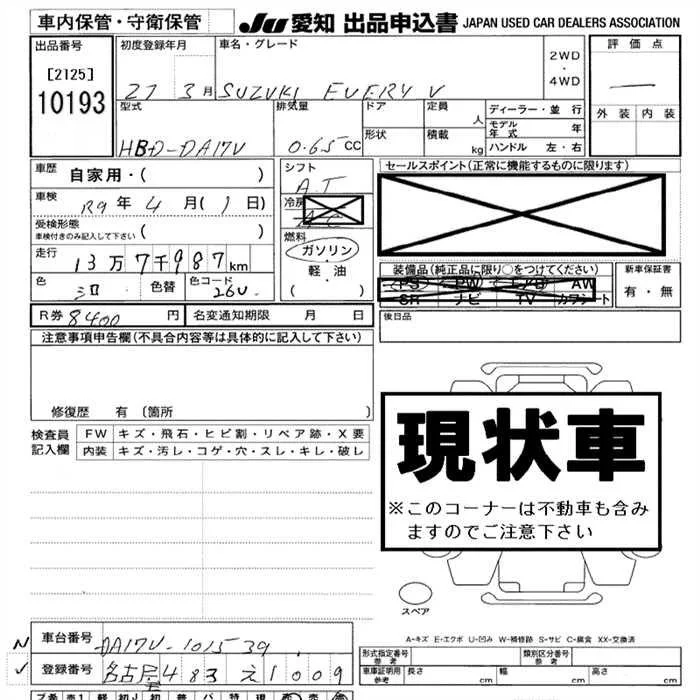 車内保管・守衛保管
JU 愛知 出品申込書 JAPAN USED CAR DEALERS ASSOCIATION
出品番号 初度登録年月 車名・グレード 評価点
[2125]
10193
27 3月 SUZUKI EVERY V
2WD・4WD
外装 内装
型式 排気量 ドア 定員 人 ディーラー・並行
形状 積載 kg モデル年式 年
HBD-DA17V 0.65cc ハンドル 左・右
車歴 自家用・( ) シフト AT セールスポイント(正常に機能するものに限ります)
車検 R9年4月(1日) 冷房 AC
受検形態
車検付きのみ記入して下さい ( ) 燃料
ガソリン・軽油
( )
走行 13万7千987km
装備品(純正品に限り○をつけてください) 新車保証書
PS PW AW 有・無
SR ナビ TV カワシート
色 シロ 色替 色コード 26U
後日品
R券 8400円 名変通知期限 月 日
注意事項申告欄(不具合内容等は具体的に記入して下さい)
修復歴 有 [箇所 ]
現状車
※このコーナーは不動車も含みますのでご注意下さい
検査員記入欄 FW キズ・飛石・ヒビ割・リペア跡・X要
内装 キズ・汚レ・コゲ・穴・スレ・キレ・破レ
スペア
A-キズ E-エクボ U-凹み W-補修跡 S-サビ C-腐食 XX-交換済
車台番号 DA17V-101539
登録番号 名古屋 483 え 1009
形式指定番号 参考 類別区分番号 参考
車庫証明用 参考 長さ cm 幅 cm 高さ cm